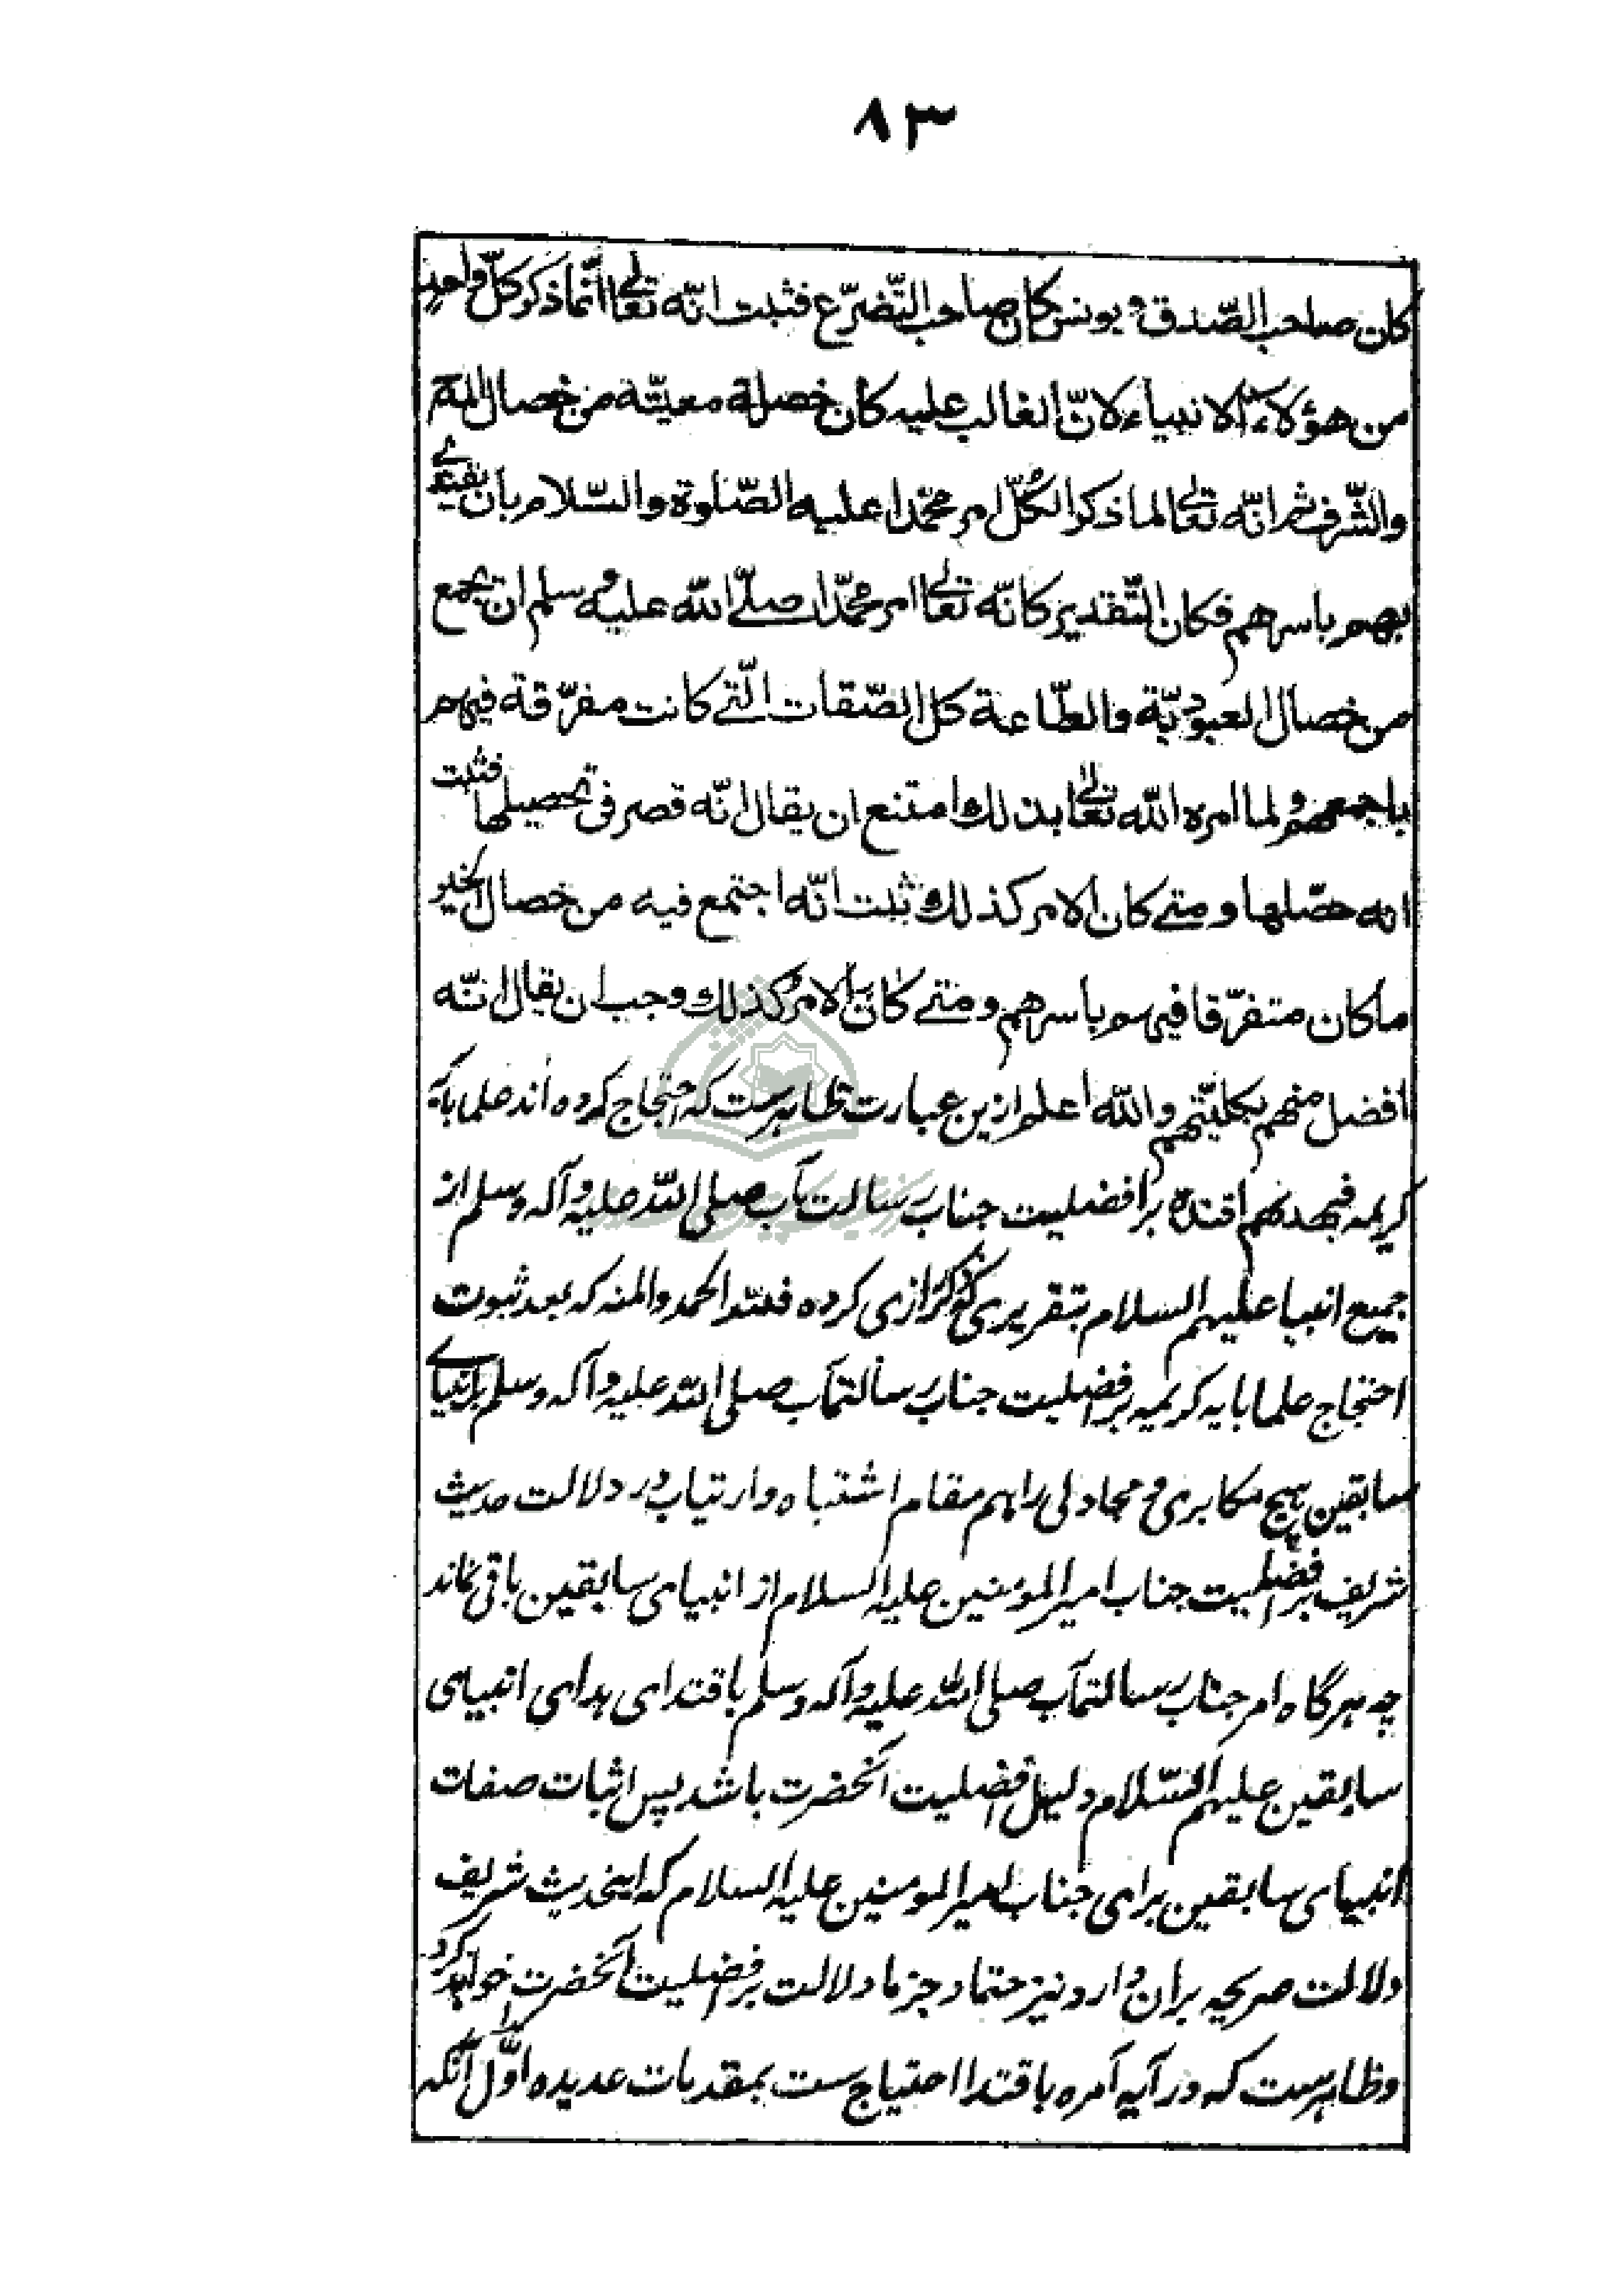 ٨٣
كان صاحب الصّدق و يونس كان صاحب التّضرّع فثبت انّه تعالى انّما ذكر كلّ واحد
من هؤلاء الانبياء لانّ الغالب عليه كان خصلة معيّنة من خصال المدح
والشّرف ثم انّه تعالى لما ذكر الكلّ امر محمّدا عليه الصّلوة والسّلام بان يقتدے
بهم باسرهم فكان التّقدير كانّه تعالى امر محمّدا صلّے اللّه عليه و سلم ان يجمع
من خصال العبوديّة والطّاعة كل الصّفات الّتے كانت مفرّقة فيهم
باجمعهم و لما امره اللّه تعالى بذلك امتنع ان يقال انّه قصر فى تحصيلها فثبت
انه حصّلها و متے كان الامر كذلك ثبت انّه اجتمع فيه من خصال الخير
ما كان متفرّقا فيهم باسرهم و متے كان الامر كذلك وجب ان يقال انّه
افضل منهم بكليّتهم واللّه اعلم ازين عبارت ظاهرست كه احتجاج كرده اند علما بآيه
كريمه فبهدىهم اقتده بر افضليت جناب رسالت مآب صلى اللّه عليه و آله وسلم از
جميع انبيا عليهم السلام بتقريرى كه فخر رازى كرده فللّه الحمد والمنه كه بعد ثبوت
احتجاج علما بايه كريمه بر افضليت جناب رسالتمآب صلى اللّه عليه و آله وسلم بر انبياے
سابقين هيچ مكابرى و مجادلى را هم مقام اشتباه و ارتياب در دلالت حديث
شريف بر افضليت جناب امير المومنين عليه السلام از انبياى سابقين باقى نماند
چه هرگاه امر جناب رسالتمآب صلى اللّه عليه و آله وسلم باقتداى هداى انبياى
سابقين عليهم السّلام دليل افضليت آنحضرت باشد پس اثبات صفات
انبياى سابقين براى جناب امير المومنين عليه السلام كه اينحديث شريف
دلالت صريحه بران دارد نيز حتما و جزما دلالت بر افضليت آنحضرت خواهد كرد
و ظاهرست كه در آيه آمره باقتدا احتياج ست بمقدمات عديده اوّل آنكه